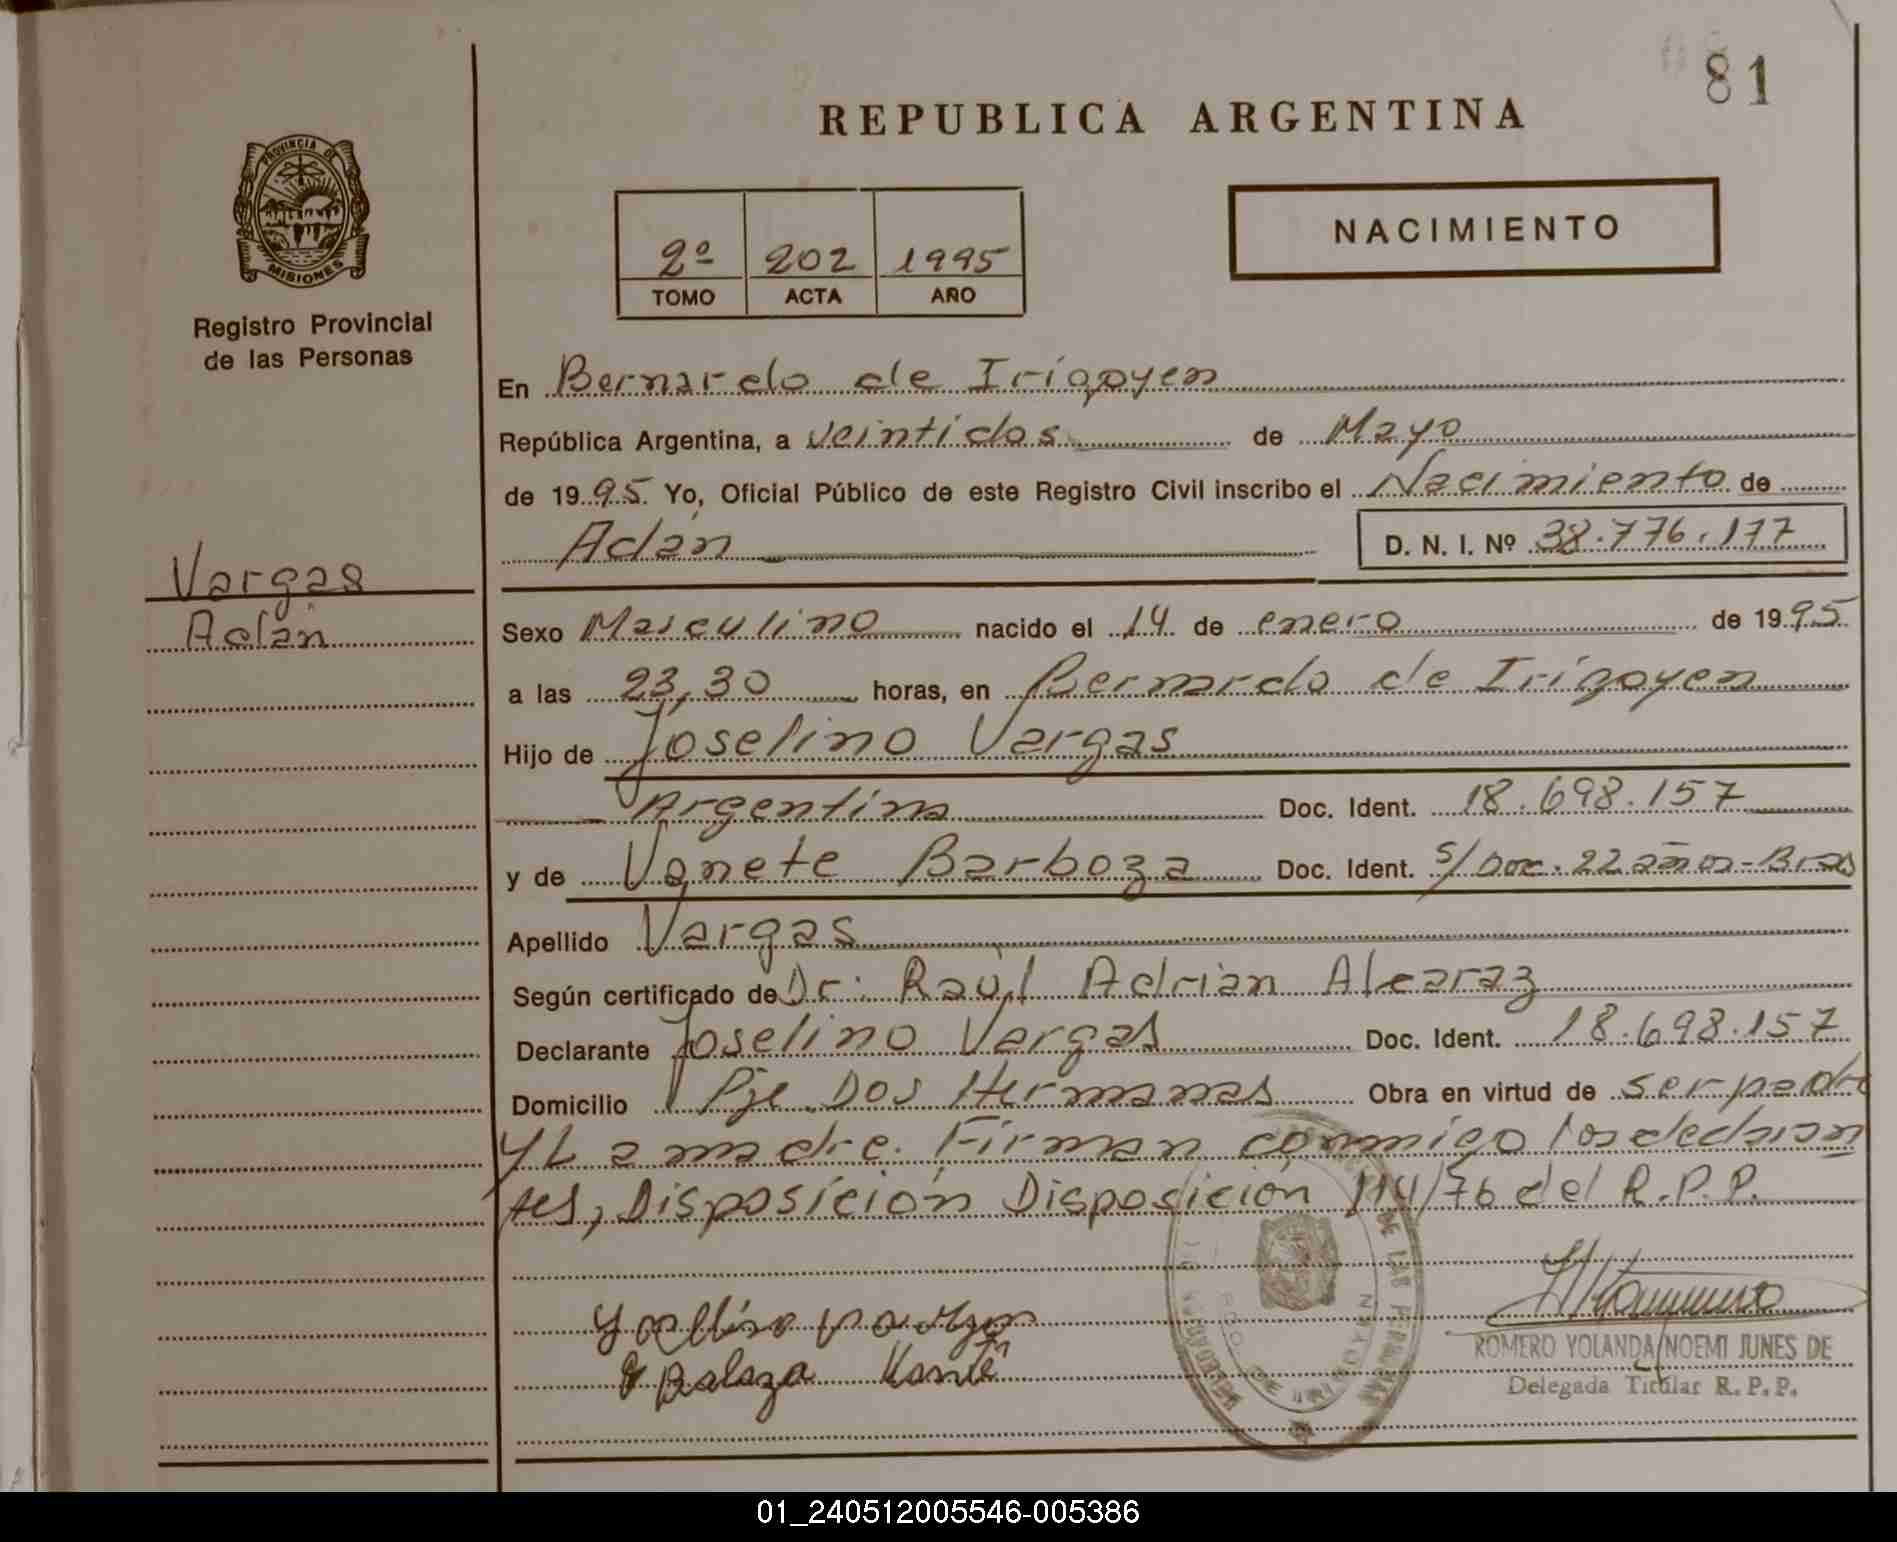 81
REPUBLICA ARGENTINA
PROVINCIA DE
MISIONES
Registro Provincial
de las Personas
NACIMIENTO
2º 202 1995
TOMO ACTA AÑO
En Bernardo de Irigoyen
República Argentina, a veintidos de Mayo
de 1995 Yo, Oficial Público de este Registro Civil inscribo el Nacimiento de
Adán D. N. I. Nº 38.776.177
Vargas
Adán
Sexo Masculino nacido el 14 de enero de 1995
a las 23,30 horas, en Bernardo de Irigoyen
Hijo de Joselino Vargas
Argentina Doc. Ident. 18.698.157
y de Vanete Barboza Doc. Ident. s/Doc. 22 años - Bras
Apellido Vargas
Según certificado de Dr: Raúl Adrian Alcaraz
Declarante Joselino Vargas Doc. Ident. 18.698.157
Domicilio Pje Dos Hermanas Obra en virtud de ser padre
y La madre. Firman conmigo los declaran
tes, Disposición Disposición 114/76 del R.P.P.
ROMERO YOLANDA NOEMI JUNES DE
Delegada Titular R.P.P.
01_240512005546-005386